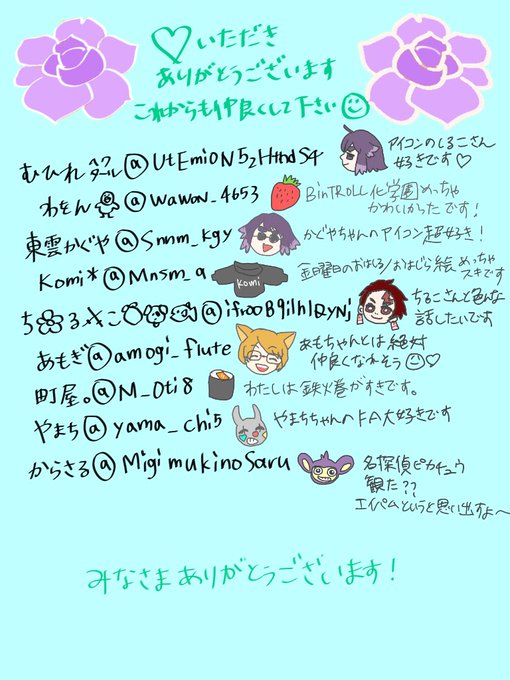 ♡いただき
ありがとうございます
これからも仲良くして下さい
むひれ
アイコンのしるこさん
好きです♡
わをん @wawon_4653
BinTROLL化学園めっちゃ
かわいかったです!
東雲かぐや@Snnm_kgy
かぐやちゃんのアイコン超好き!
Komi*@Mnsm_a
komi
金曜日のおはしる/おはじら絵めっちゃ
スキです
ちるこ
ちるこさんと色んな
話したいです
あもぎ@amogi_flute
あもちゃんとは絶対
仲良くなれそう♡
町屋。@M_Oti8
わたしは鉄火巻がすきです。
やまち@yama_chi5
やまちちゃんのFA大好きです
からさる@MigimukinoSaru
名探偵ピカチュウ
観た??
エイパムというと思い出すよ〜
みなさまありがとうございます!